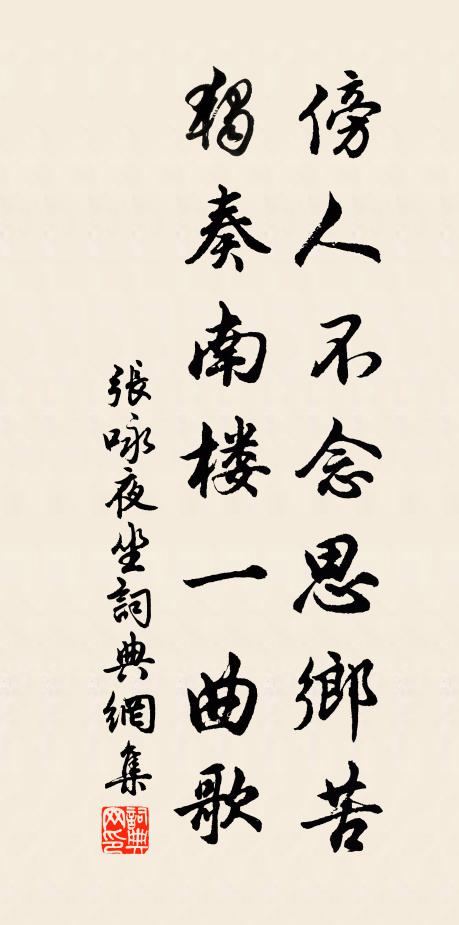 傍人不念思鄉苦
獨奏南楼一曲歌
張咏夜坐詞典網集
詞典网印